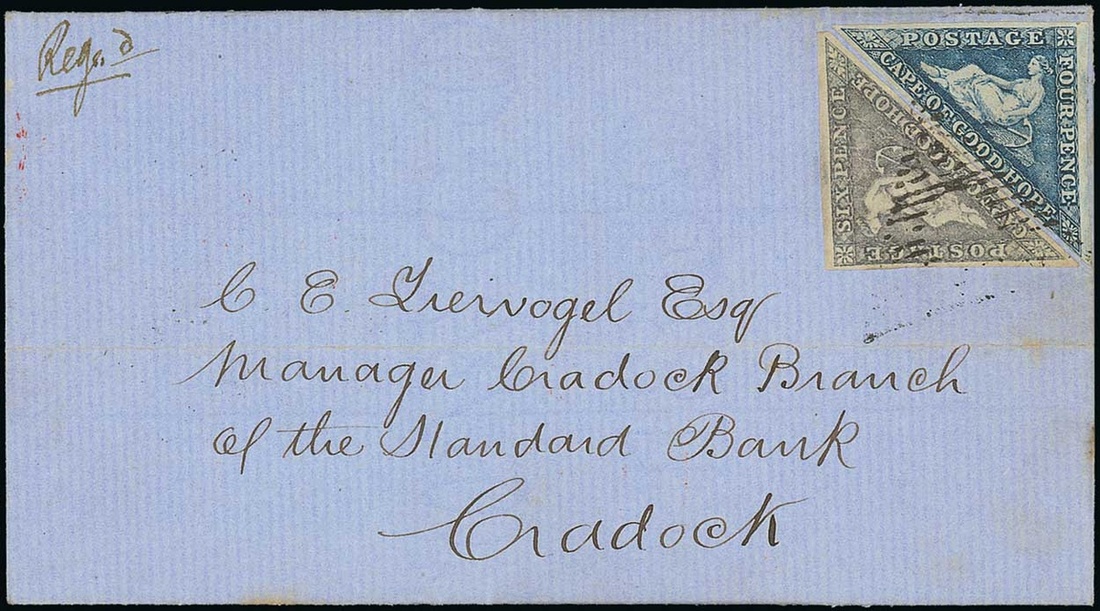 Regd
POSTAGE
FOUR·PENCE
CAPE·OF·GOOD HOPE
SIX·PENCE
POSTAGE
C E Liewogel Esq
Manager Cradock Branch
of the Standard Bank
Cradock